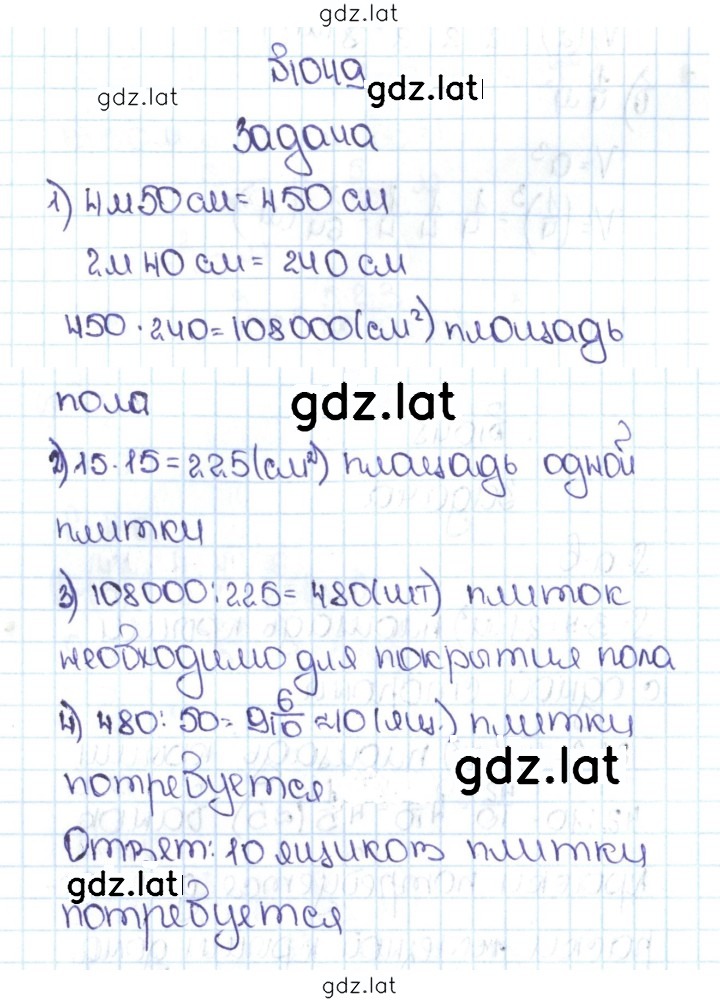 gdz.lat
§1049
gdz.lat
gdz.lat
Задача
1) 4м50см=450см
2м 40 см= 240 см
450·240=108000(см²) площадь
пола
gdz.lat
2) 15·15=225(см²) площадь одной
плитки
3) 108000:225=480(шт) плиток
необходимо для покрытия пола
4) 480:50=9 6/10≈10(ящ.) плитки
gdz.lat
потребуется.
Ответ: 10 ящиков плитки
gdz.lat
потребуется
gdz.lat